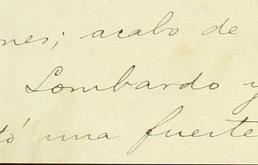 nes; acabo de
Lombardo y
tó una fuerte